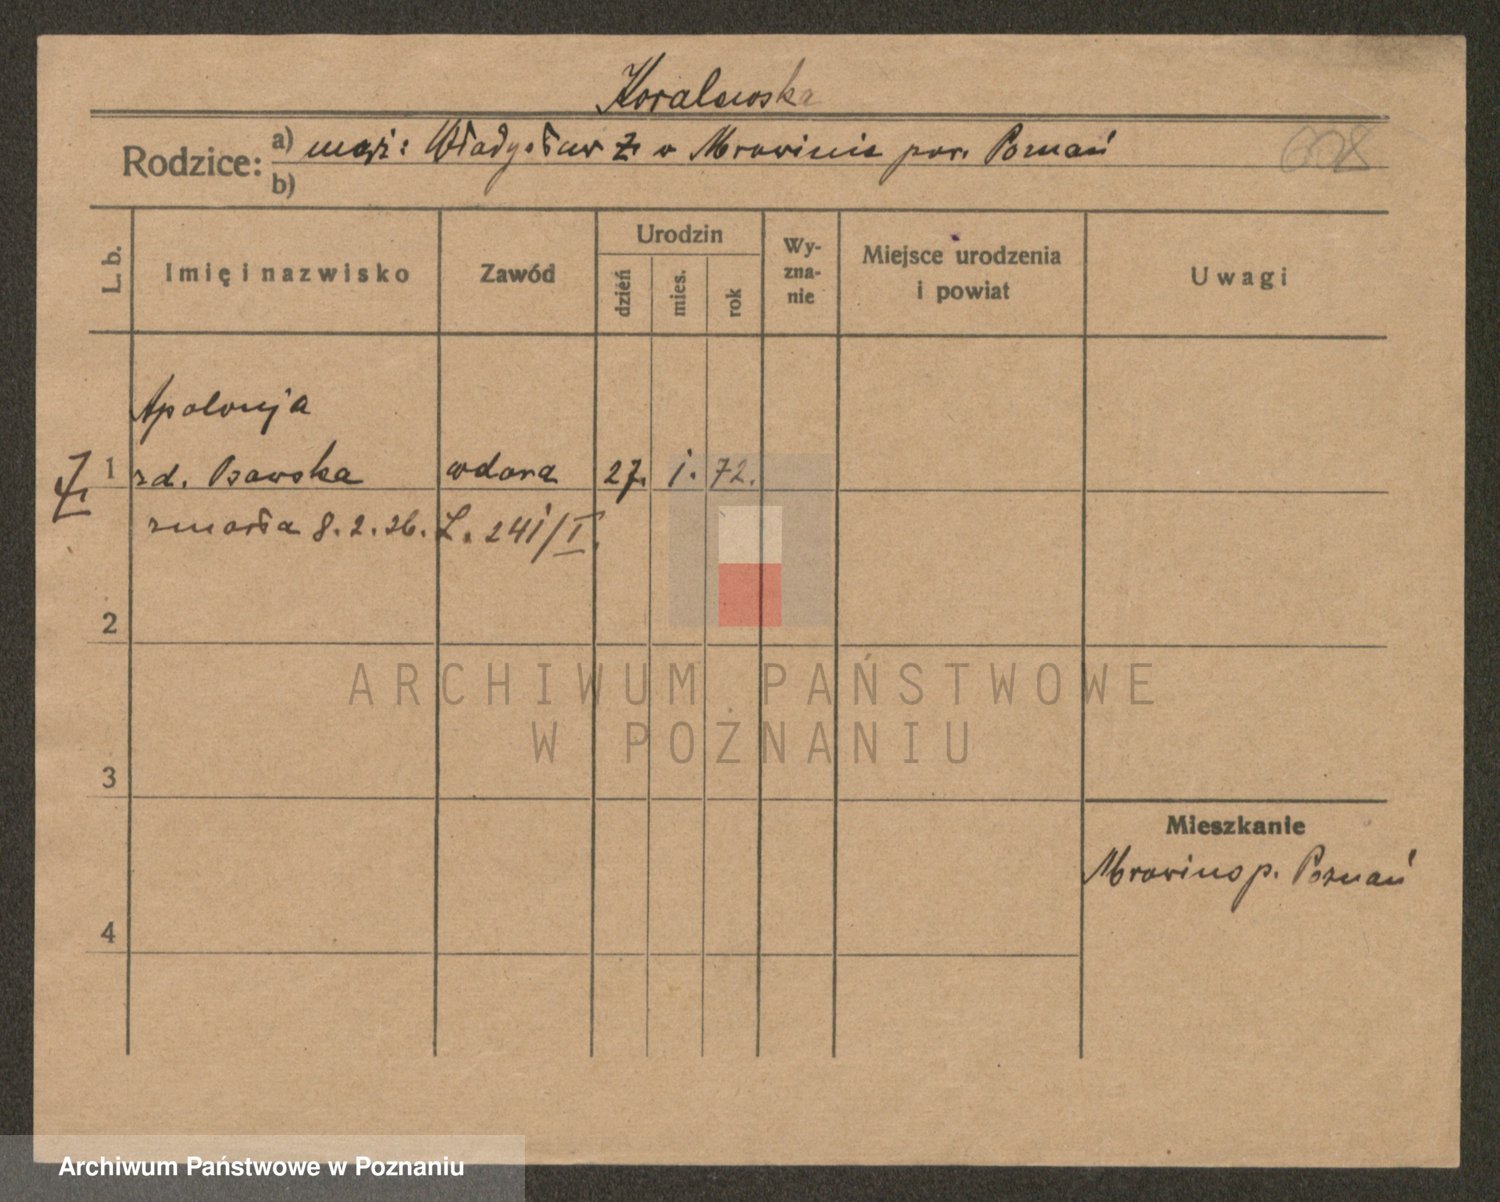 Koralewska
Rodzice: a) mąż: Władysław Ż. w Mrowinie pow. Poznań
b)
L. b.
Imię i nazwisko
Zawód
Urodzin
dzień
mies.
rok
Wy-
zna-
nie
Miejsce urodzenia
i powiat
Uwagi
Apolonja
1 zd. wdowa 27. 1. 72.
zmarła 8. 2. 26. L. 241/I.
2
3
4
Mieszkanie
Mrowino p. Poznań
ARCHIWUM PAŃSTWOWE
W POZNANIU
Archiwum Państwowe w Poznaniu